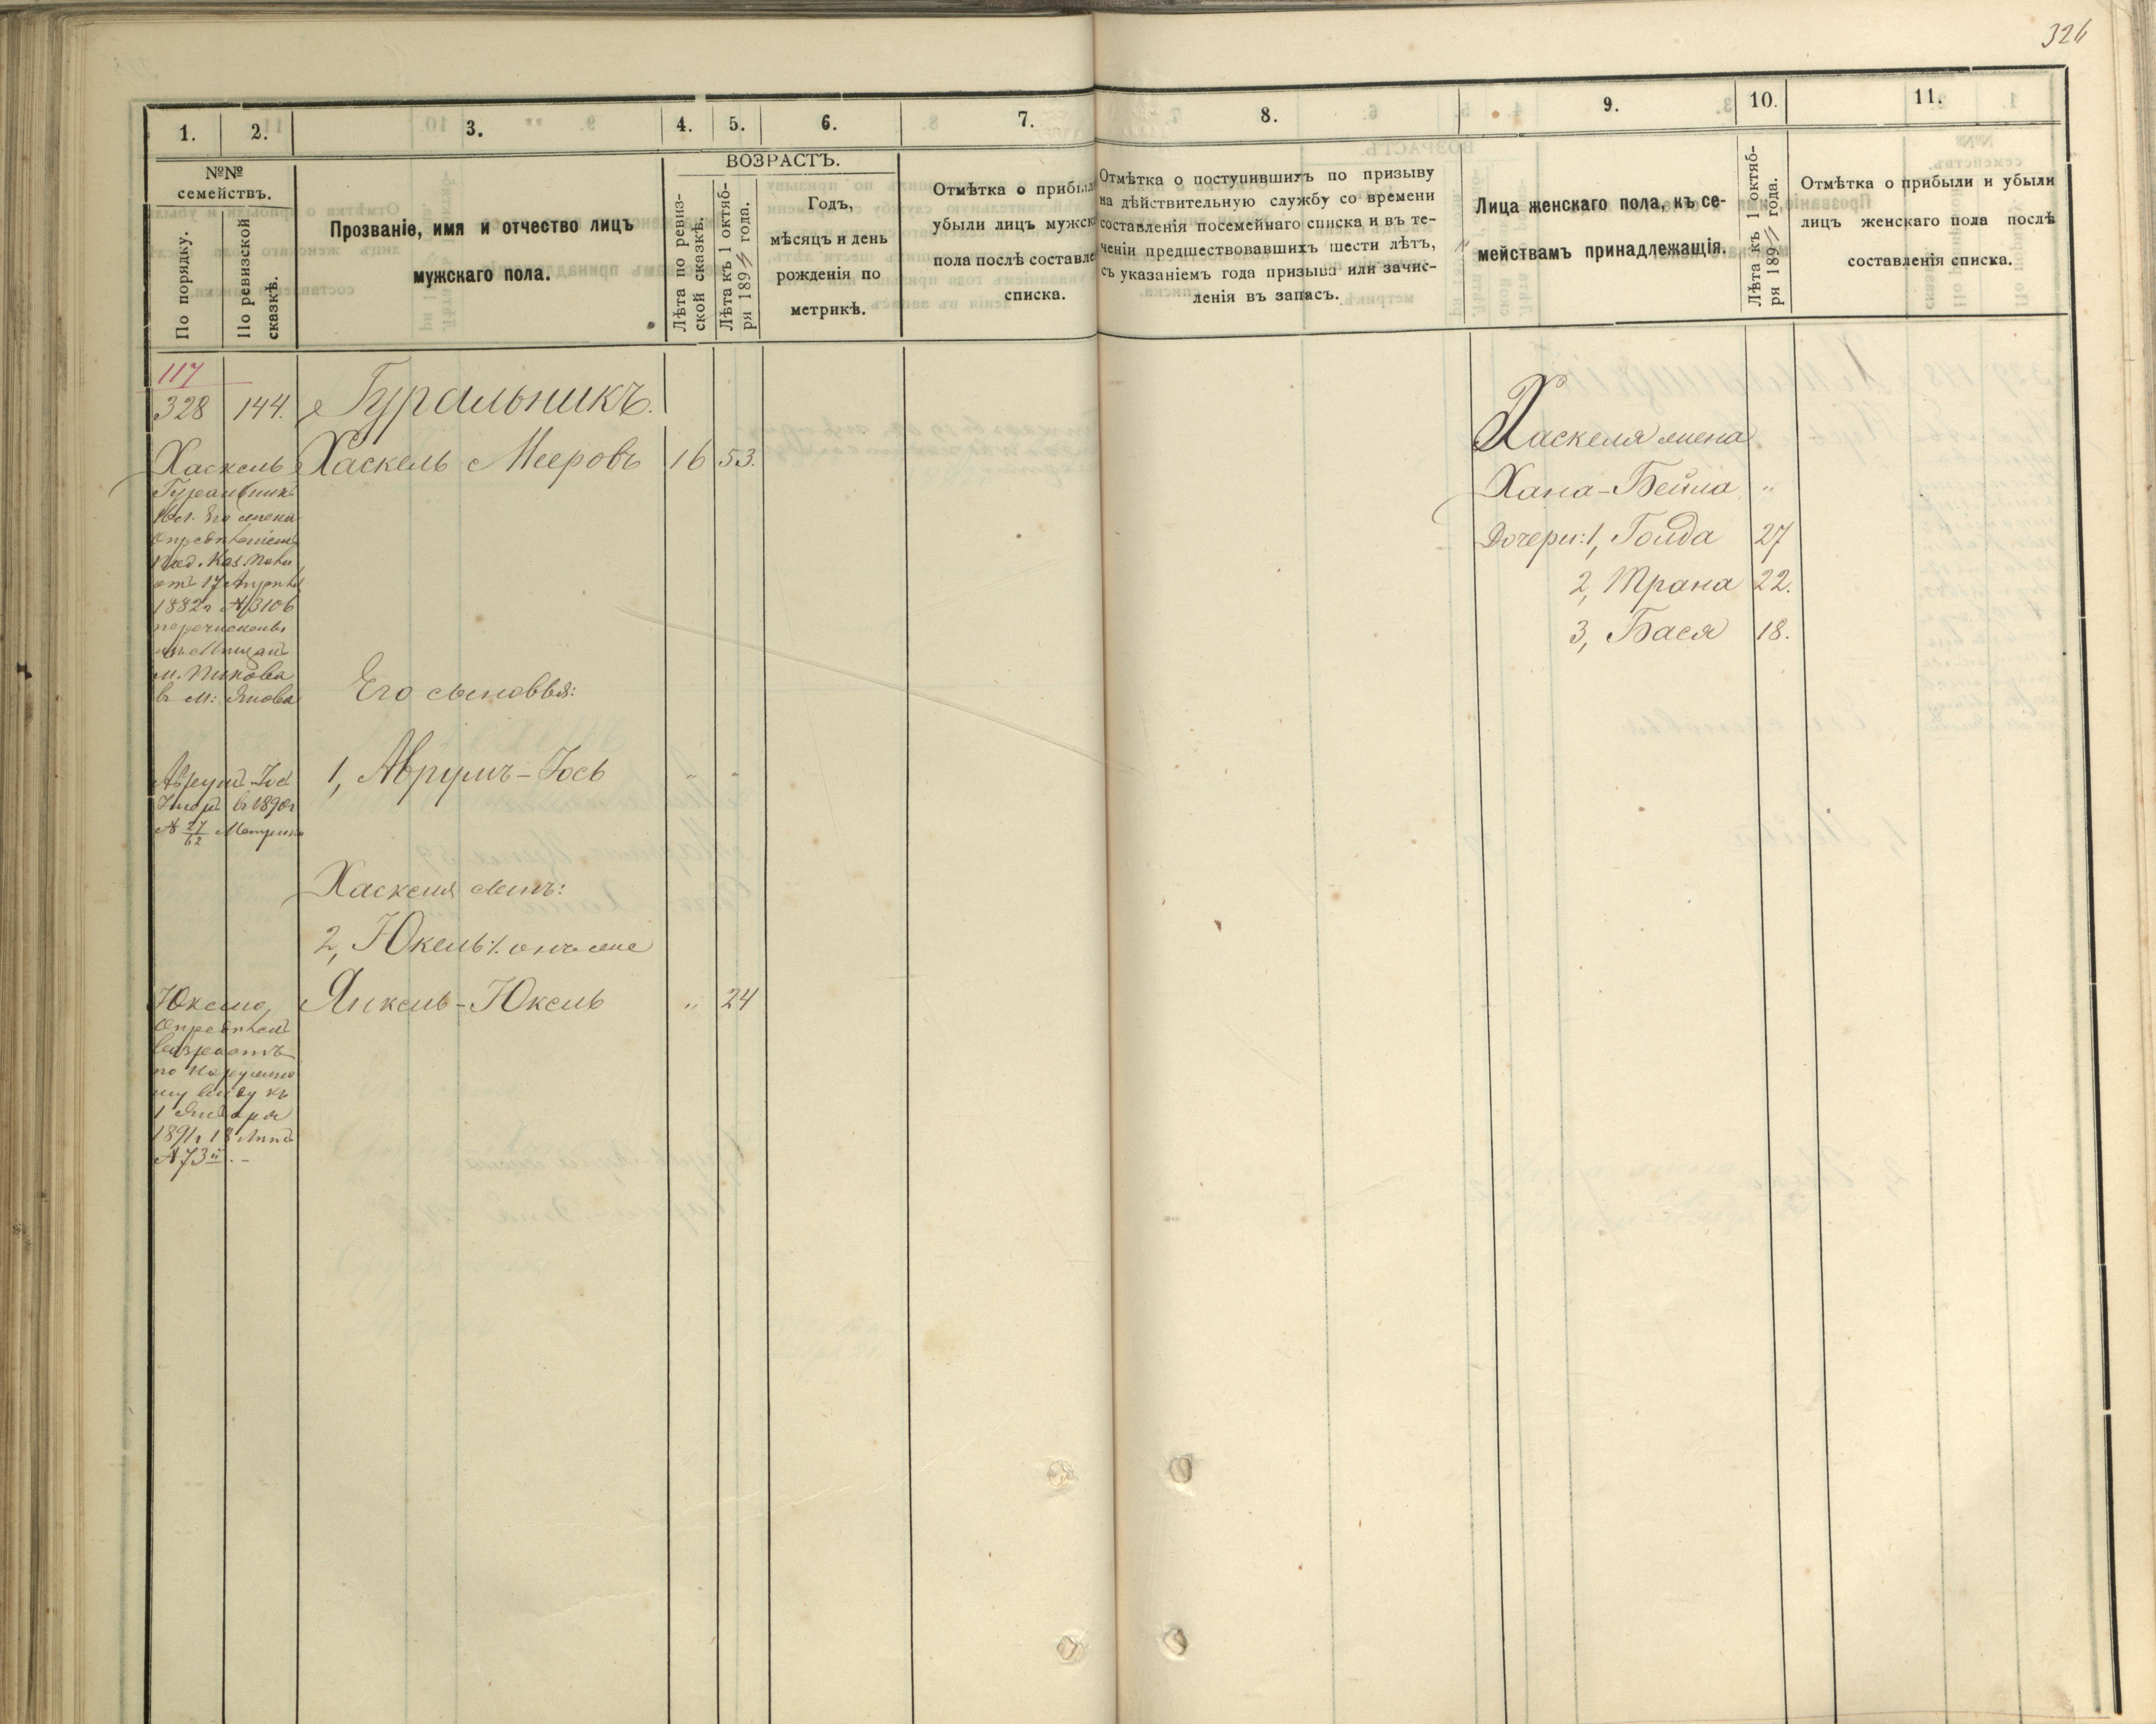 326
1. 2. 3. 4. 5. 6. 7. 8. 9. 10. 11.
№№ семействъ.
По порядку.
По ревизской сказкѣ.
Прозваніе, имя и отчество лицъ
мужскаго пола.
ВОЗРАСТЪ.
Лѣта по ревиз-
ской сказкѣ.
Лѣта къ 1 октяб-
ря 189 года.
Годъ,
мѣсяцъ и день
рожденія по
метрикѣ.
Отмѣтка о прибыл
убыли лицъ мужск
пола послѣ составле
списка.
Отмѣтка о поступившихъ по призыву
на дѣйствительную службу со времени
составленія посемейнаго списка и въ те-
ченіи предшествовавшихъ шести лѣтъ,
съ указаніемъ года призыва или зачис-
ленія въ запасъ.
Лица женскаго пола, къ се-
мействамъ принадлежащія.
Лѣта къ 1 октяб-
ря 189 года.
Отмѣтка о прибыли и убыли
лицъ женскаго пола послѣ
составленія списка.
117
328 144. Гуральникъ.
Хаскель Мееровъ 16 53.
Хаскель
Гуральникъ
опредѣленіемъ
Под. Каз. Пал
отъ 17 Апрѣля
1882 г №3106
перечисленъ
изъ Мѣщанъ
м. Пикова
въ м: Янова
Его сыновья:
1, Аврумъ-Іось " "
Аврумъ-Іось
Умеръ въ 1890 г
№ 27/62 Метрика
Хаскеля сынъ:
2, Юкель:/. онъ же
Янкель-Юкель " 24
Юкелю
опредѣленъ
возрастъ
по наружно
му виду къ
1 Января
1891 г 18 лѣтъ
№73
Хаскеля жена
Хана-Бейла "
Дочери: 1, Голда 27
2, Трана 22.
3, Бася 18.